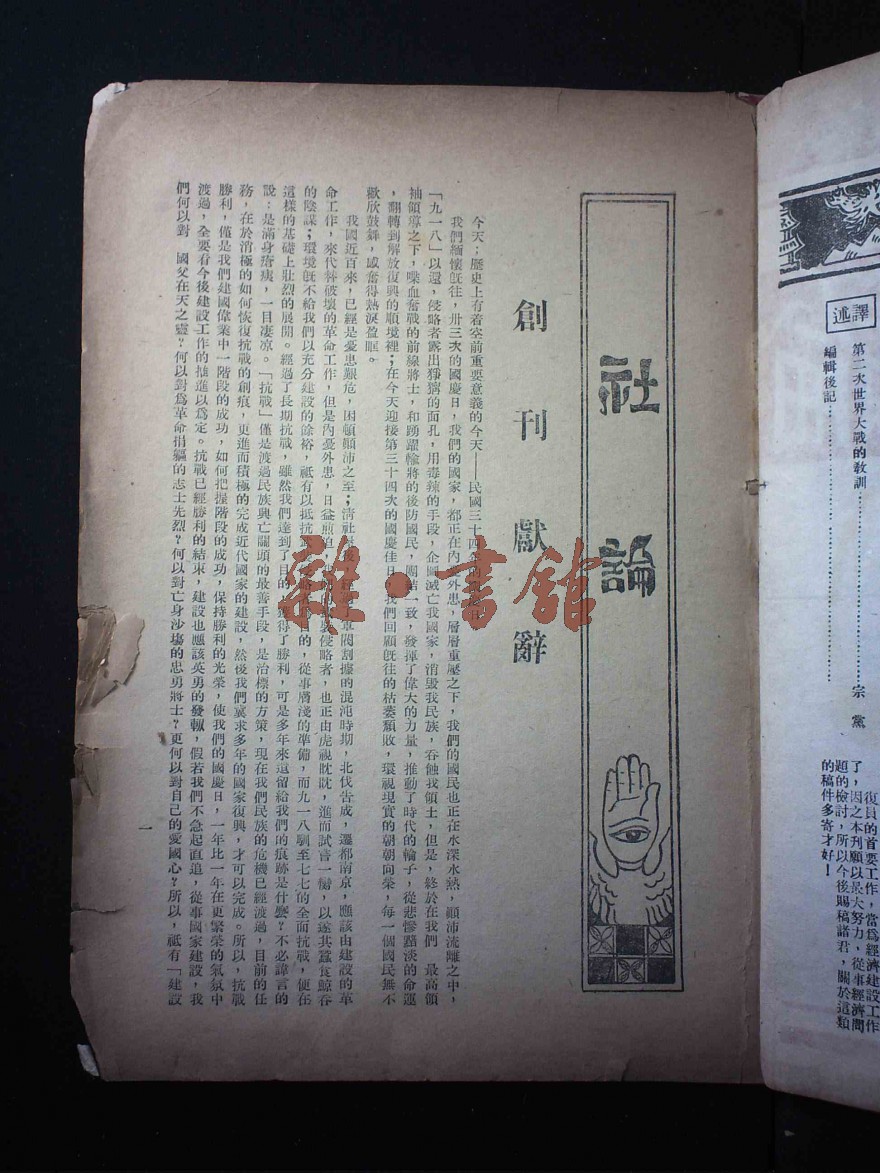 社論
創刊獻辭
今天：歷史上有着空前重要意義的今天——民國三十四
我們緬懷旣往，卅三次的國慶日，我們的國家，都正在內 外患，層層重壓之下，我們的國民也正在水深火熱，顚沛流離之中，
「九一八」以還，侵略者露出猙獰的面孔，用毒辣的手段，企圖滅亡我國家，消毁我民族，吞蝕我領土，但是，終於在我們　最高領
袖領導之下，喋血奮戰的前線將士，和踴躍輸將的後防國民，團結一致，發揮了偉大的力量，推動了時代的輪子，從悲慘黯淡的命運
，翻轉到解放復興的順境裡；在今天迎接第三十四次的國慶佳日 我們回顧旣往的枯萎頹敗，環視現實的朝朝向榮，每一個國民無不
歡欣鼓舞，感奮得熱淚盈眶。
我國近百來，已經是憂患艱危，困頓顚沛之至；淸社 軍閥割據的混沌時期，北伐告成，遷都南京，應該由建設的革
命工作，來代替破壞的革命工作，但是內憂外患，日益煎迫， 侵略者，也正由虎視眈眈，進而試嘗一臠，以遂其蠶食鯨吞
的陰謀；環境旣不給我們以充分建設的餘裕，祗有以抵抗武 目的，從事膚淺的準備，而九一八馴至七七的全面抗戰，便在
這樣的基礎上壯烈的展開。經過了長期抗戰，雖然我們達到了目的，獲得了勝利，可是多年來遺留給我們的痕跡是什麼？不必諱言的
說：是滿身瘡痍，一目凄凉。「抗戰」僅是渡過民族興亡關頭的最善手段，是治標的方策，現在我們民族的危機已經渡過，目前的任
務，在於消極的如何恢復抗戰的創痕，更進而積極的完成近代國家的建設，然後我們冀求多年的國家復興，才可以完成。所以，抗戰
勝利，僅是我們建國偉業中一階段的成功，如何把握階段的成功，保持勝利的光榮，使我們的國慶日，一年比一年在更繁榮的氣氛中
渡過，全要看今後建設工作的推進以爲定。抗戰已經勝利的結束，建設也應該英勇的發軔，假若我們不急起直追，從事國家建設，我
們何以對　國父在天之靈？何以對爲革命捐軀的志士先烈？何以對亡身沙場的忠勇將士？更何以對自己的愛國心？所以，祗有「建設
一
雜·書館
譯述
第二次世界大戰的敎訓……………………宗黨
編輯後記……………………
復員的首要工作，當爲經濟建設工作
了，因之本刊願以最大努力，從事經濟問
題的檢討，所以今後賜稿諸君，關於這類
的稿件多寄才好！